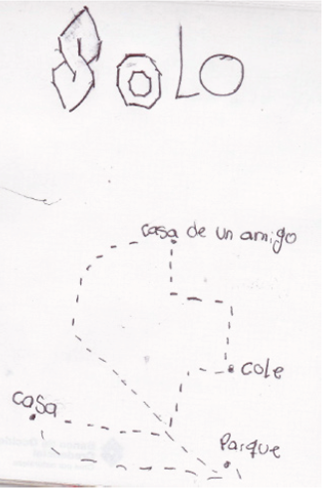 Solo
casa de un amigo
cole
casa
Parque